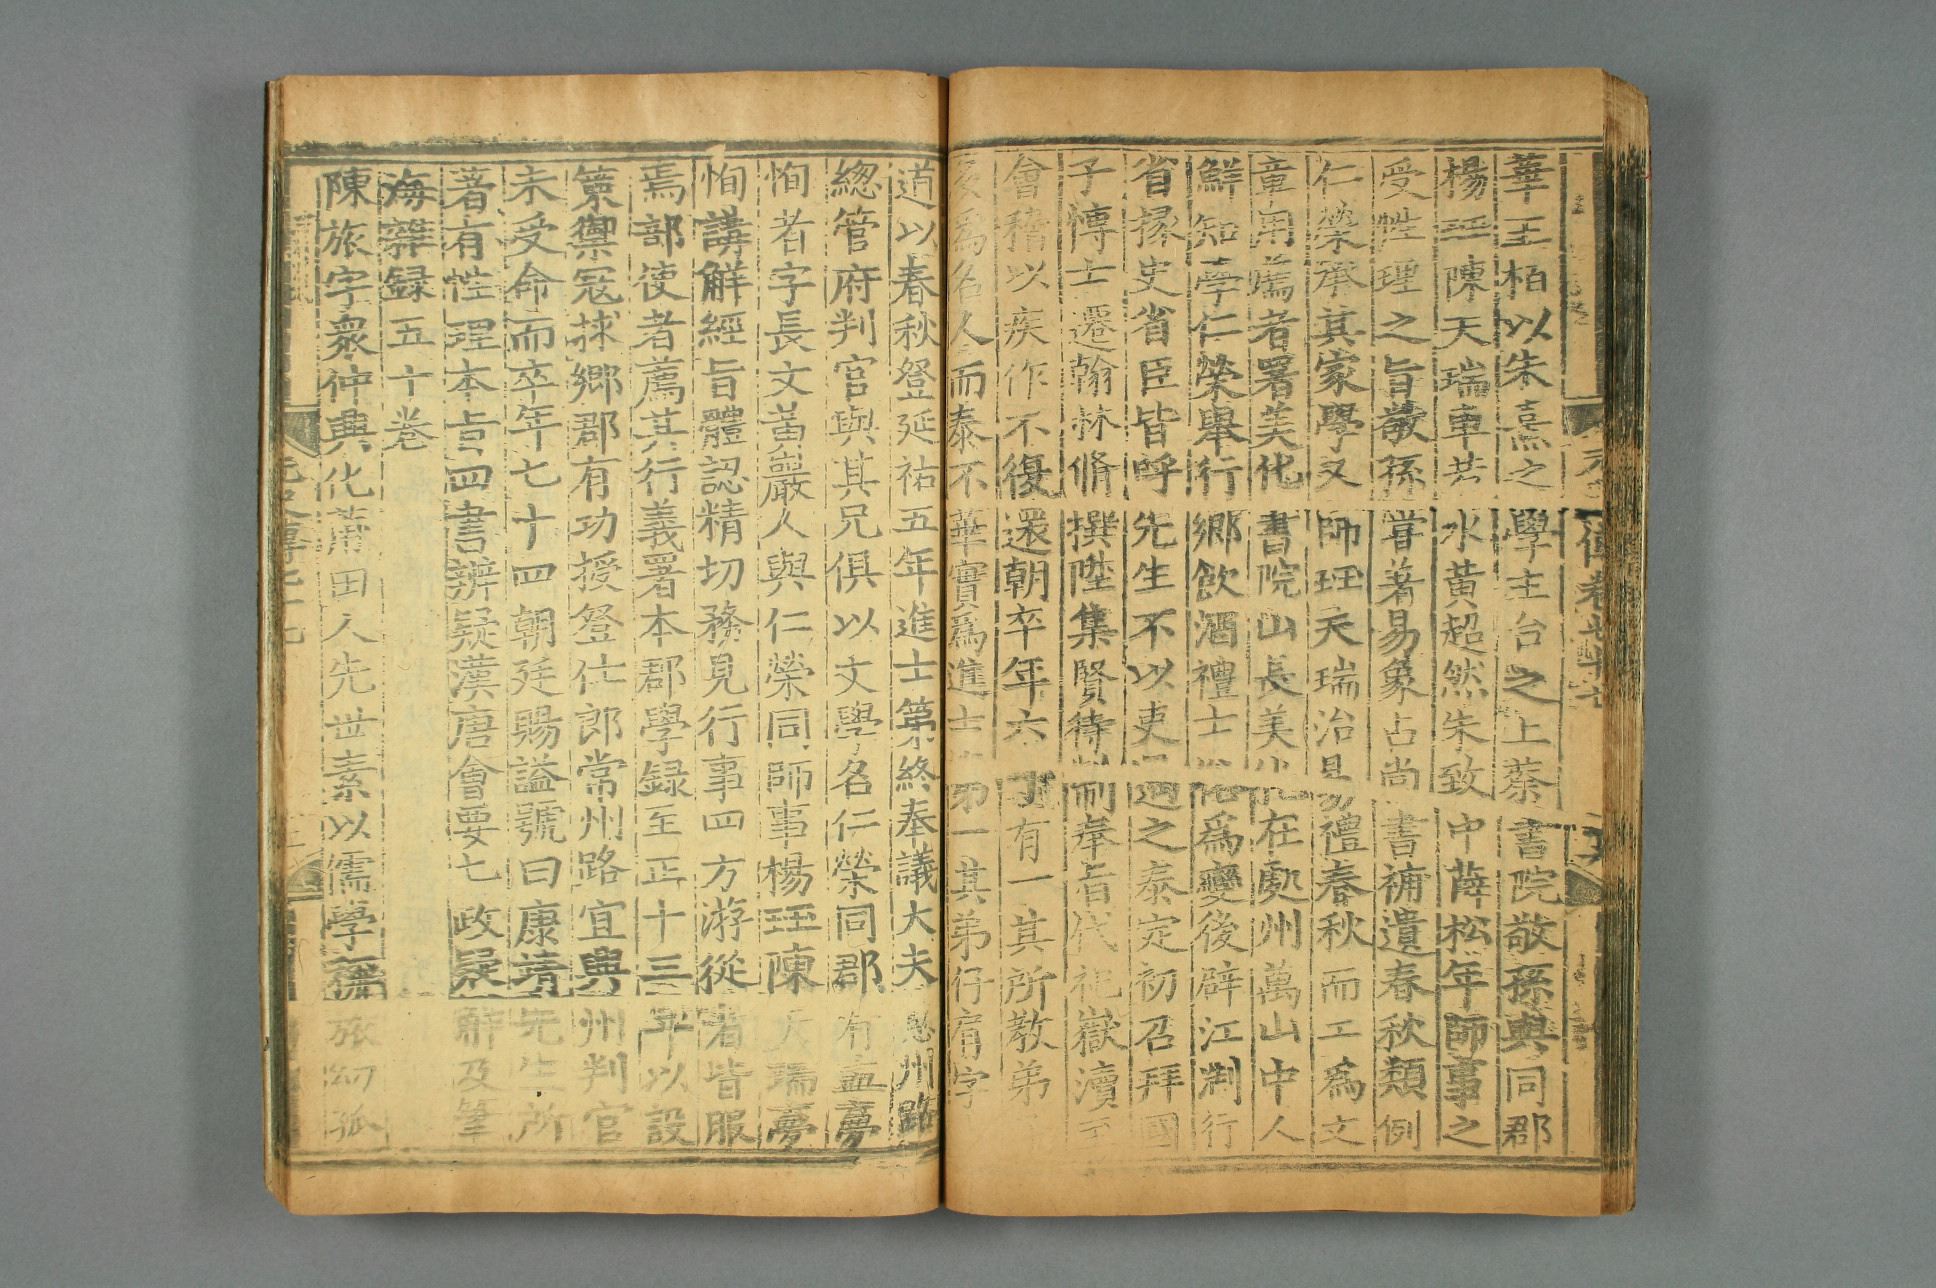 華王柏以朱熹之學主台之上蔡書院敬孫與同郡
楊珏陳天瑞車若水黃超然朱致中薛松年師事之
受性理之旨敬孫嘗著易象占尚書補遺春秋類例
仁榮承其家學又師珏天瑞治易禮春秋而工爲文
章用薦者署美化書院山長美化在處州萬山中人
鮮知學仁榮舉行鄉飲酒禮士俗爲變後辟江淛行
省掾史省臣皆呼先生不以吏遇之泰定初召拜國
子博士遷翰林脩撰陞集賢待制奉旨代祀嶽瀆至
會稽以疾作不復還朝卒年六十有一其所教弟
多爲名人而泰不華實爲進士第一其弟仔肩字
道以春秋登延祐五年進士第終奉議大夫惠州路
總管府判官與其兄俱以文學名仁榮同郡有孟夢
恂者字長文黃巖人與仁榮同師事楊珏陳天瑞夢
恂講解經旨體認精切務見行事四方游從者皆服
焉部使者薦其行義署本郡學録至正十三年以設
策禦宼捄鄉郡有功授登仕郎常州路宜興州判官
未受命而卒年七十四朝廷賜謚號曰康靖先生所
著有性理本旨四書辨疑漢唐會要七政疑解及筆
海雜録五十卷
陳旅字衆仲興化莆田人先世素以儒學稱旅幼孤